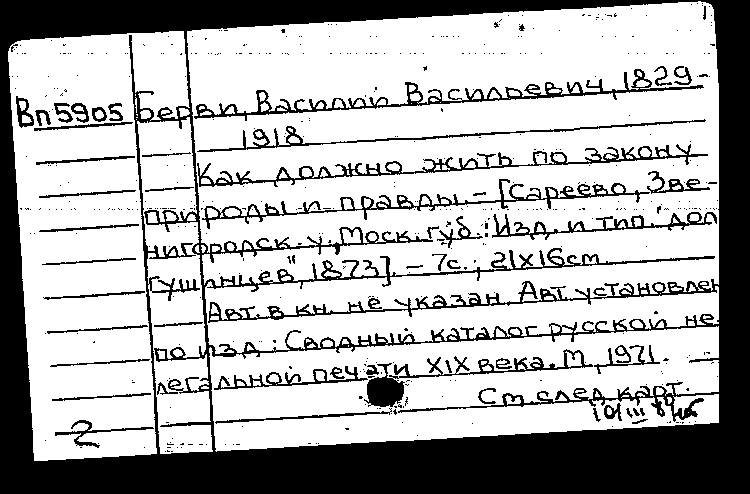 Вп5905 Берви, Василий Васильевич, 1829-
1918
Как должно жить по закону
природы и правды. - [Сареево, Зве-
нигородск. у., Моск. губ.: Изд. и тип. "дол
гушинцев", 1873]. - 7с.; 21х16см.
Авт. в кн. не указан. Авт. установлен
по изд.: Сводный каталог русской не-
легальной печати XIX века. М., 1971. —
См. след. карт.
2